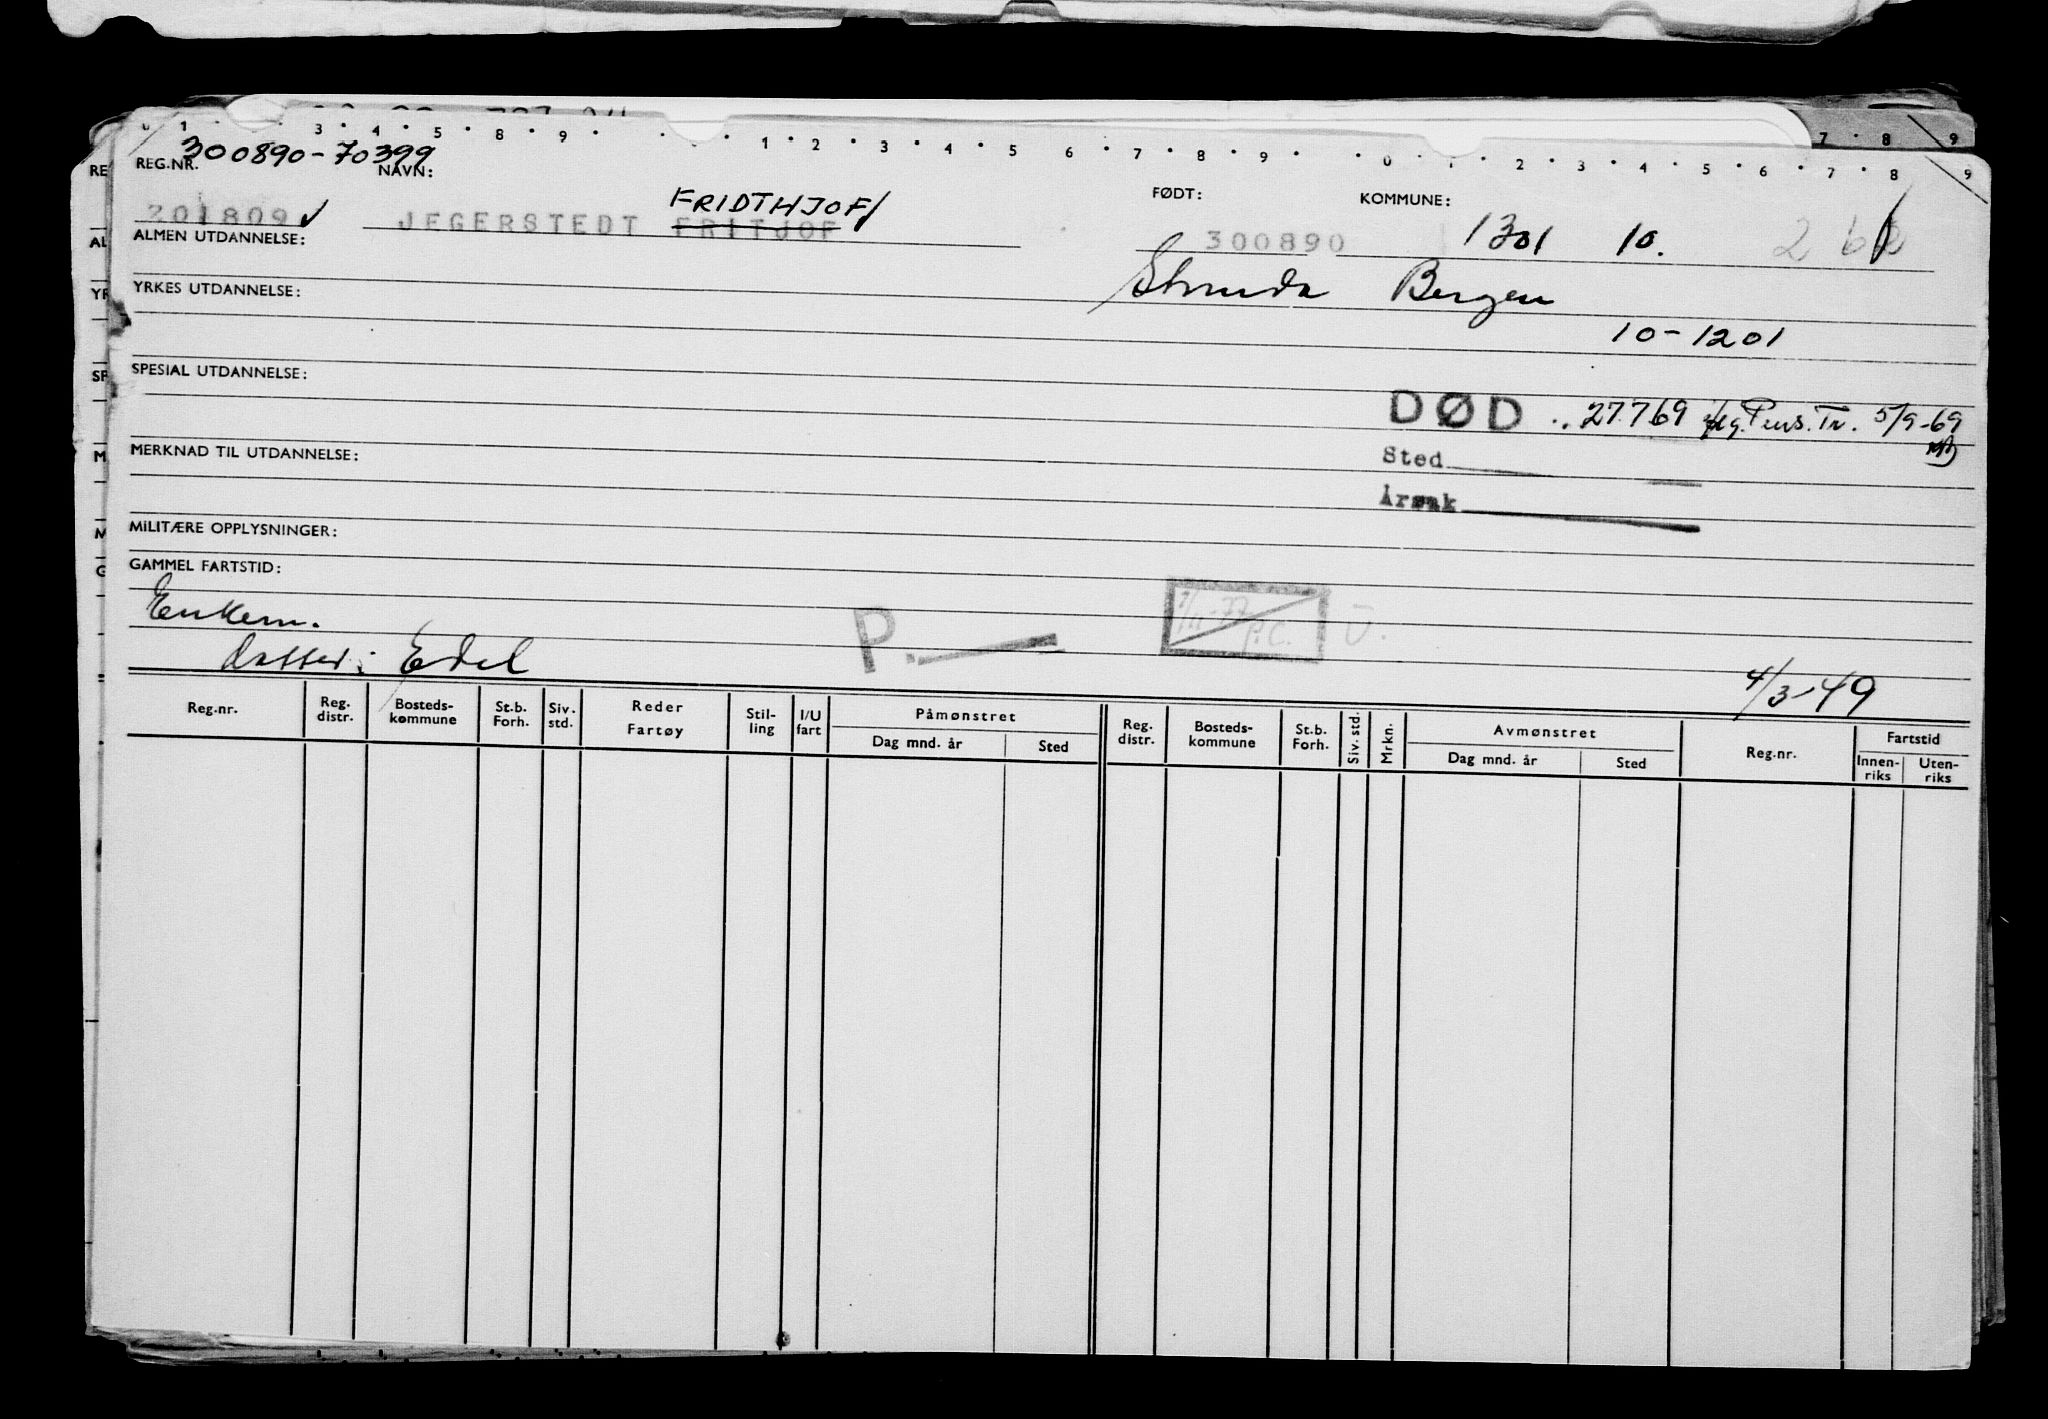 0 1 · · 3 · 4 · 5 · 8 · 9 · · · 1 · 2 · 3 · 4 · 5 · 6 · 7 · 8 · 9 · · 0 · 1 · 2 · 3 · 4 · 5 · 6 · 7 · 8 9
7 · 8 · 9
REG.NR. 300890-70399 NAVN: FØDT: KOMMUNE:
FRIDTHJOF
201809 JEGERSTEDT FRITJOF 300890 1301 10.
ALMEN UTDANNELSE:
Bergen
YRKES UTDANNELSE:
10-1201
SPESIAL UTDANNELSE:
DØD .. 27769 iflg. Pens. Tr. 5/9-69
MERKNAD TIL UTDANNELSE: Sted
Årsak
MILITÆRE OPPLYSNINGER:
GAMMEL FARTSTID:
Enkem. P. 1/11-77 P.C. U.
datter: Edel
4/3-49
Reg.nr. Reg. distr. Bosteds-kommune St.b. Forh. Siv. std. Reder Fartøy Stil-ling I/U fart Påmønstret Dag mnd. år Sted Reg. distr. Bosteds-kommune St.b. Forh. Siv. std. Mrkn. Avmønstret Dag mnd. år Sted Reg.nr. Fartstid Innen-riks Uten-riks